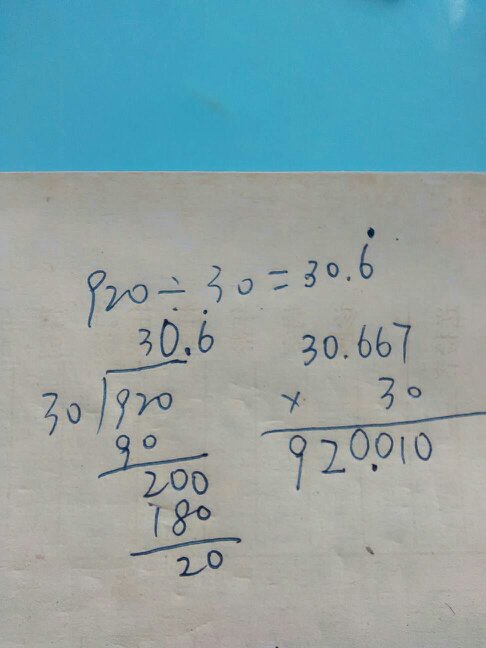 920÷30=30.6̇
30.6̇
30.667
30
920
× 30
90
920.010
200
180
20